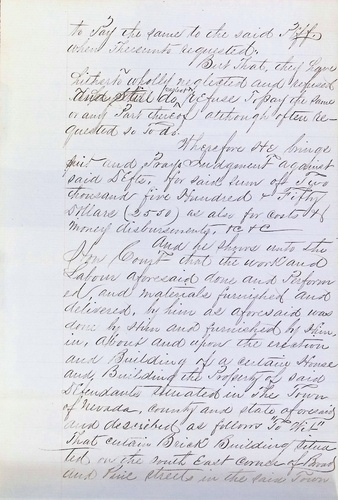 to Pay the same to the said Plff.
when thereunto requested.
But that they have
hitherto wholly neglected and refused
And Still do neglect & refuse To pay the same
or any Part thereof although often re-
quested so to do.
Wherefore He brings
suit and Prays Judgement against
said Defts. for said sum of Two
thousand five Hundred & Fifty
Dollars (2550) as also for costs &
money disbursements, &c &c
And he shows unto the
Hon Court that the work and
Labour aforesaid done and Perform
ed, and materials furnished and
delivered, by him as aforesaid was
done by him and furnished by him,
in, about and upon the erection
and Building of a certain House
and Building the Property of said
Defendants situated in the Town
of Nevada, county and state aforesaid
and described as follows "To Wit"
That certain Brick Building situa
ted on the South East corner of Broad
and Pine streets in the said Town